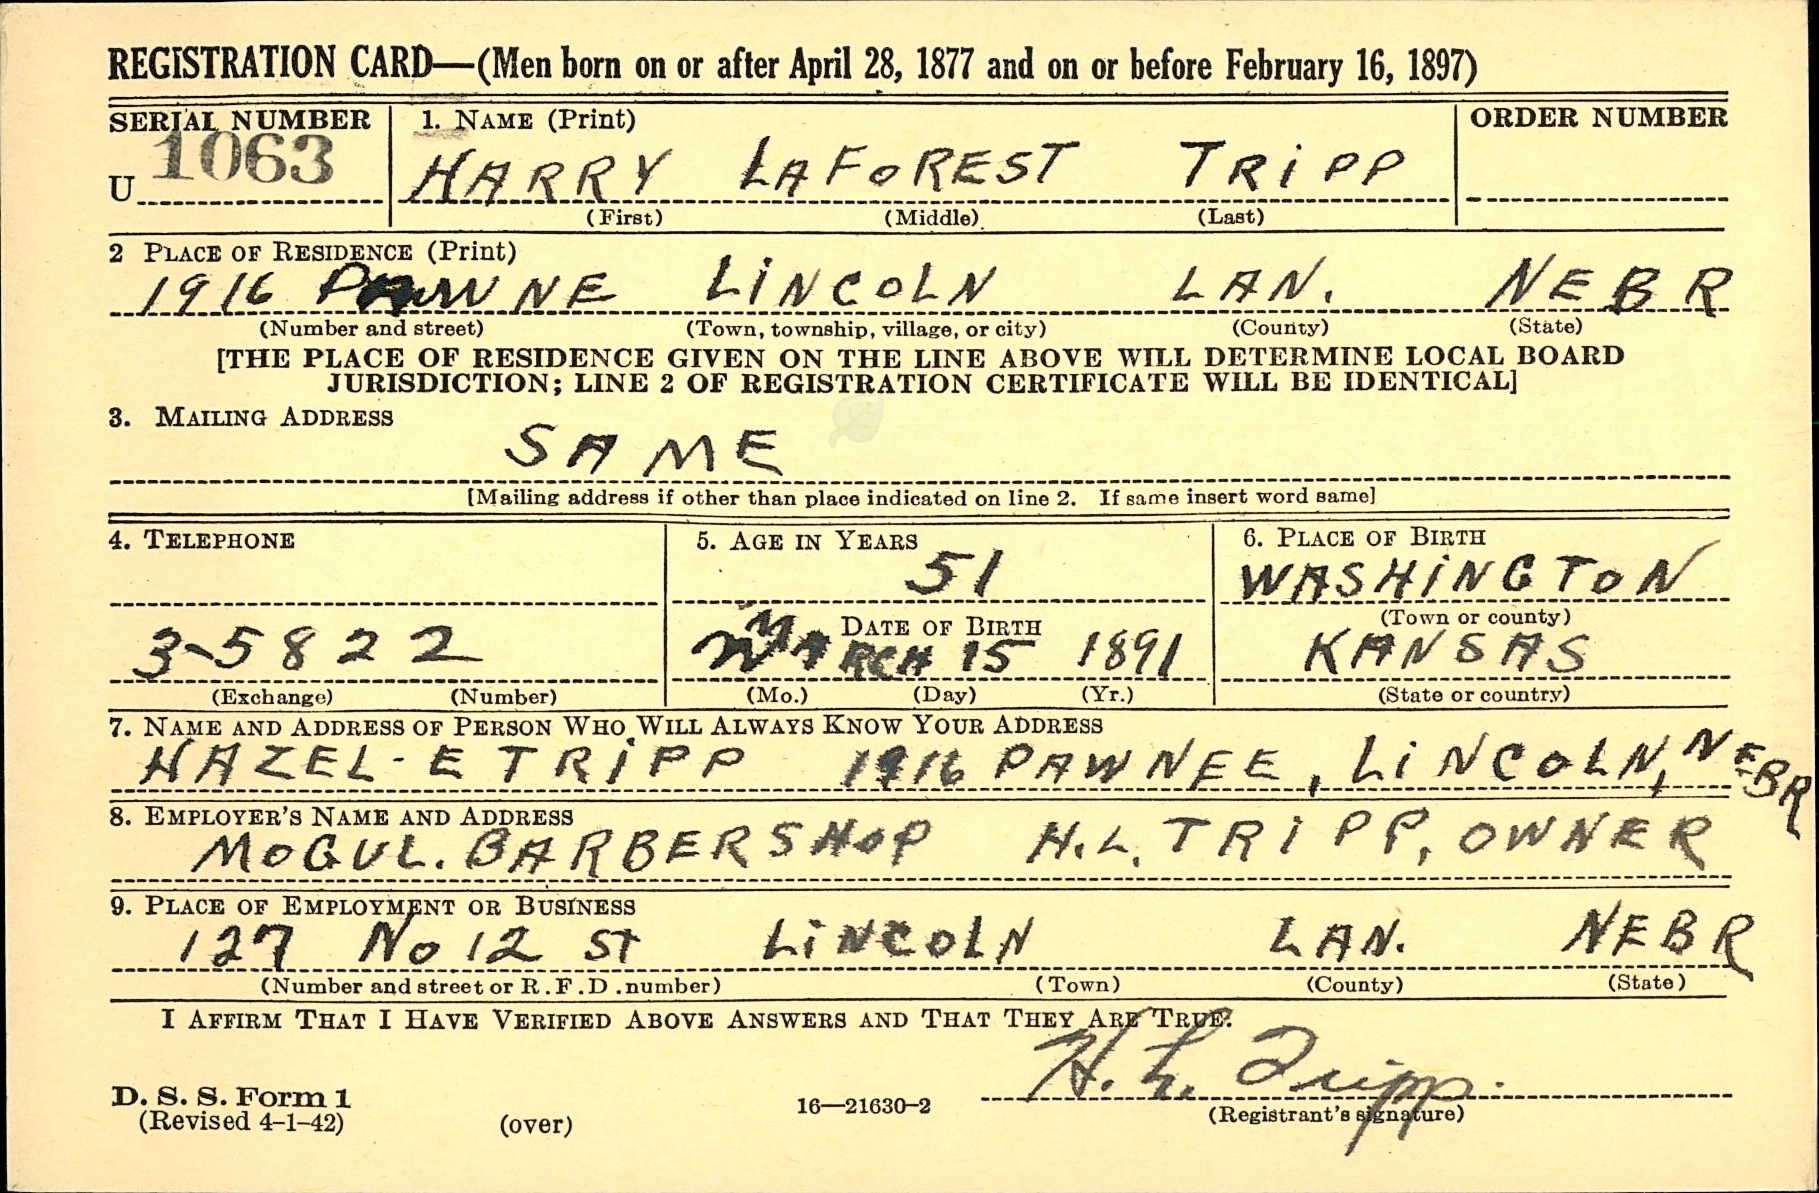 REGISTRATION CARD—(Men born on or after April 28, 1877 and on or before February 16, 1897)
SERIAL NUMBER 1. NAME (Print) ORDER NUMBER
U 1063 HARRY LAFOREST TRIPP
(First) (Middle) (Last)
2 PLACE OF RESIDENCE (Print)
1916 PAWNE LINCOLN LAN. NEBR
(Number and street) (Town, township, village, or city) (County) (State)
[THE PLACE OF RESIDENCE GIVEN ON THE LINE ABOVE WILL DETERMINE LOCAL BOARD
JURISDICTION; LINE 2 OF REGISTRATION CERTIFICATE WILL BE IDENTICAL]
3. MAILING ADDRESS
SAME
[Mailing address if other than place indicated on line 2. If same insert word same]
4. TELEPHONE 5. AGE IN YEARS 6. PLACE OF BIRTH
51 WASHINGTON
DATE OF BIRTH (Town or county)
3-5822 MARCH 15 1891 KANSAS
(Exchange) (Number) (Mo.) (Day) (Yr.) (State or country)
7. NAME AND ADDRESS OF PERSON WHO WILL ALWAYS KNOW YOUR ADDRESS
HAZEL-E TRIPP 1916 PAWNEE, LINCOLN, NEBR
8. EMPLOYER'S NAME AND ADDRESS
MOGUL. BARBERSHOP H.L. TRIPP, OWNER
9. PLACE OF EMPLOYMENT OR BUSINESS
127 No 12 ST LINCOLN LAN. NEBR
(Number and street or R.F.D. number) (Town) (County) (State)
I AFFIRM THAT I HAVE VERIFIED ABOVE ANSWERS AND THAT THEY ARE TRUE.
H. L. Tripp.
D. S. S. Form 1
(Revised 4-1-42) (over) 16—21630-2 (Registrant's signature)